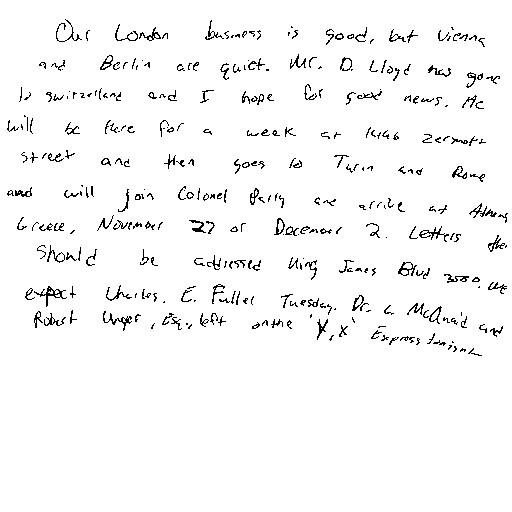 Our London business is good, but Vienna
and Berlin are quiet. Mr. D. Lloyd has gone
to switzerland and I hope for good news. He
will be there for a week at 1496 zermott
street and then goes to Turin and Rome
and will join Colonel Parry and arrive at Athens
Greece, November 27 or December 2. Letters there
should be addressed King James Blvd 3580. We
expect Charles. E. Fuller Tuesday. Dr. L McQuaid and
Robert Unger, Esq., left on the 'Y,X' Express tonight